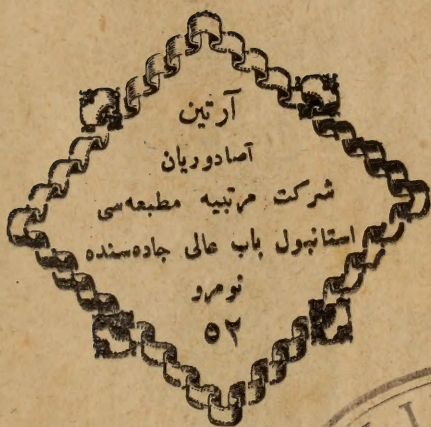 آرتین
آصادوریان
شرکت مرتبیه مطبعه‌سی
استانبول باب عالی جاده‌سنده
نومرو
٥٢